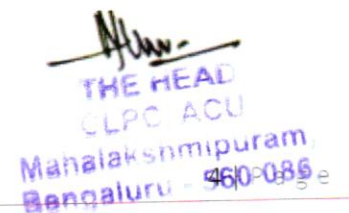 THE HEAD
CLPC ACU
Mahalakshmipuram,
Bengaluru - 560 086
Page